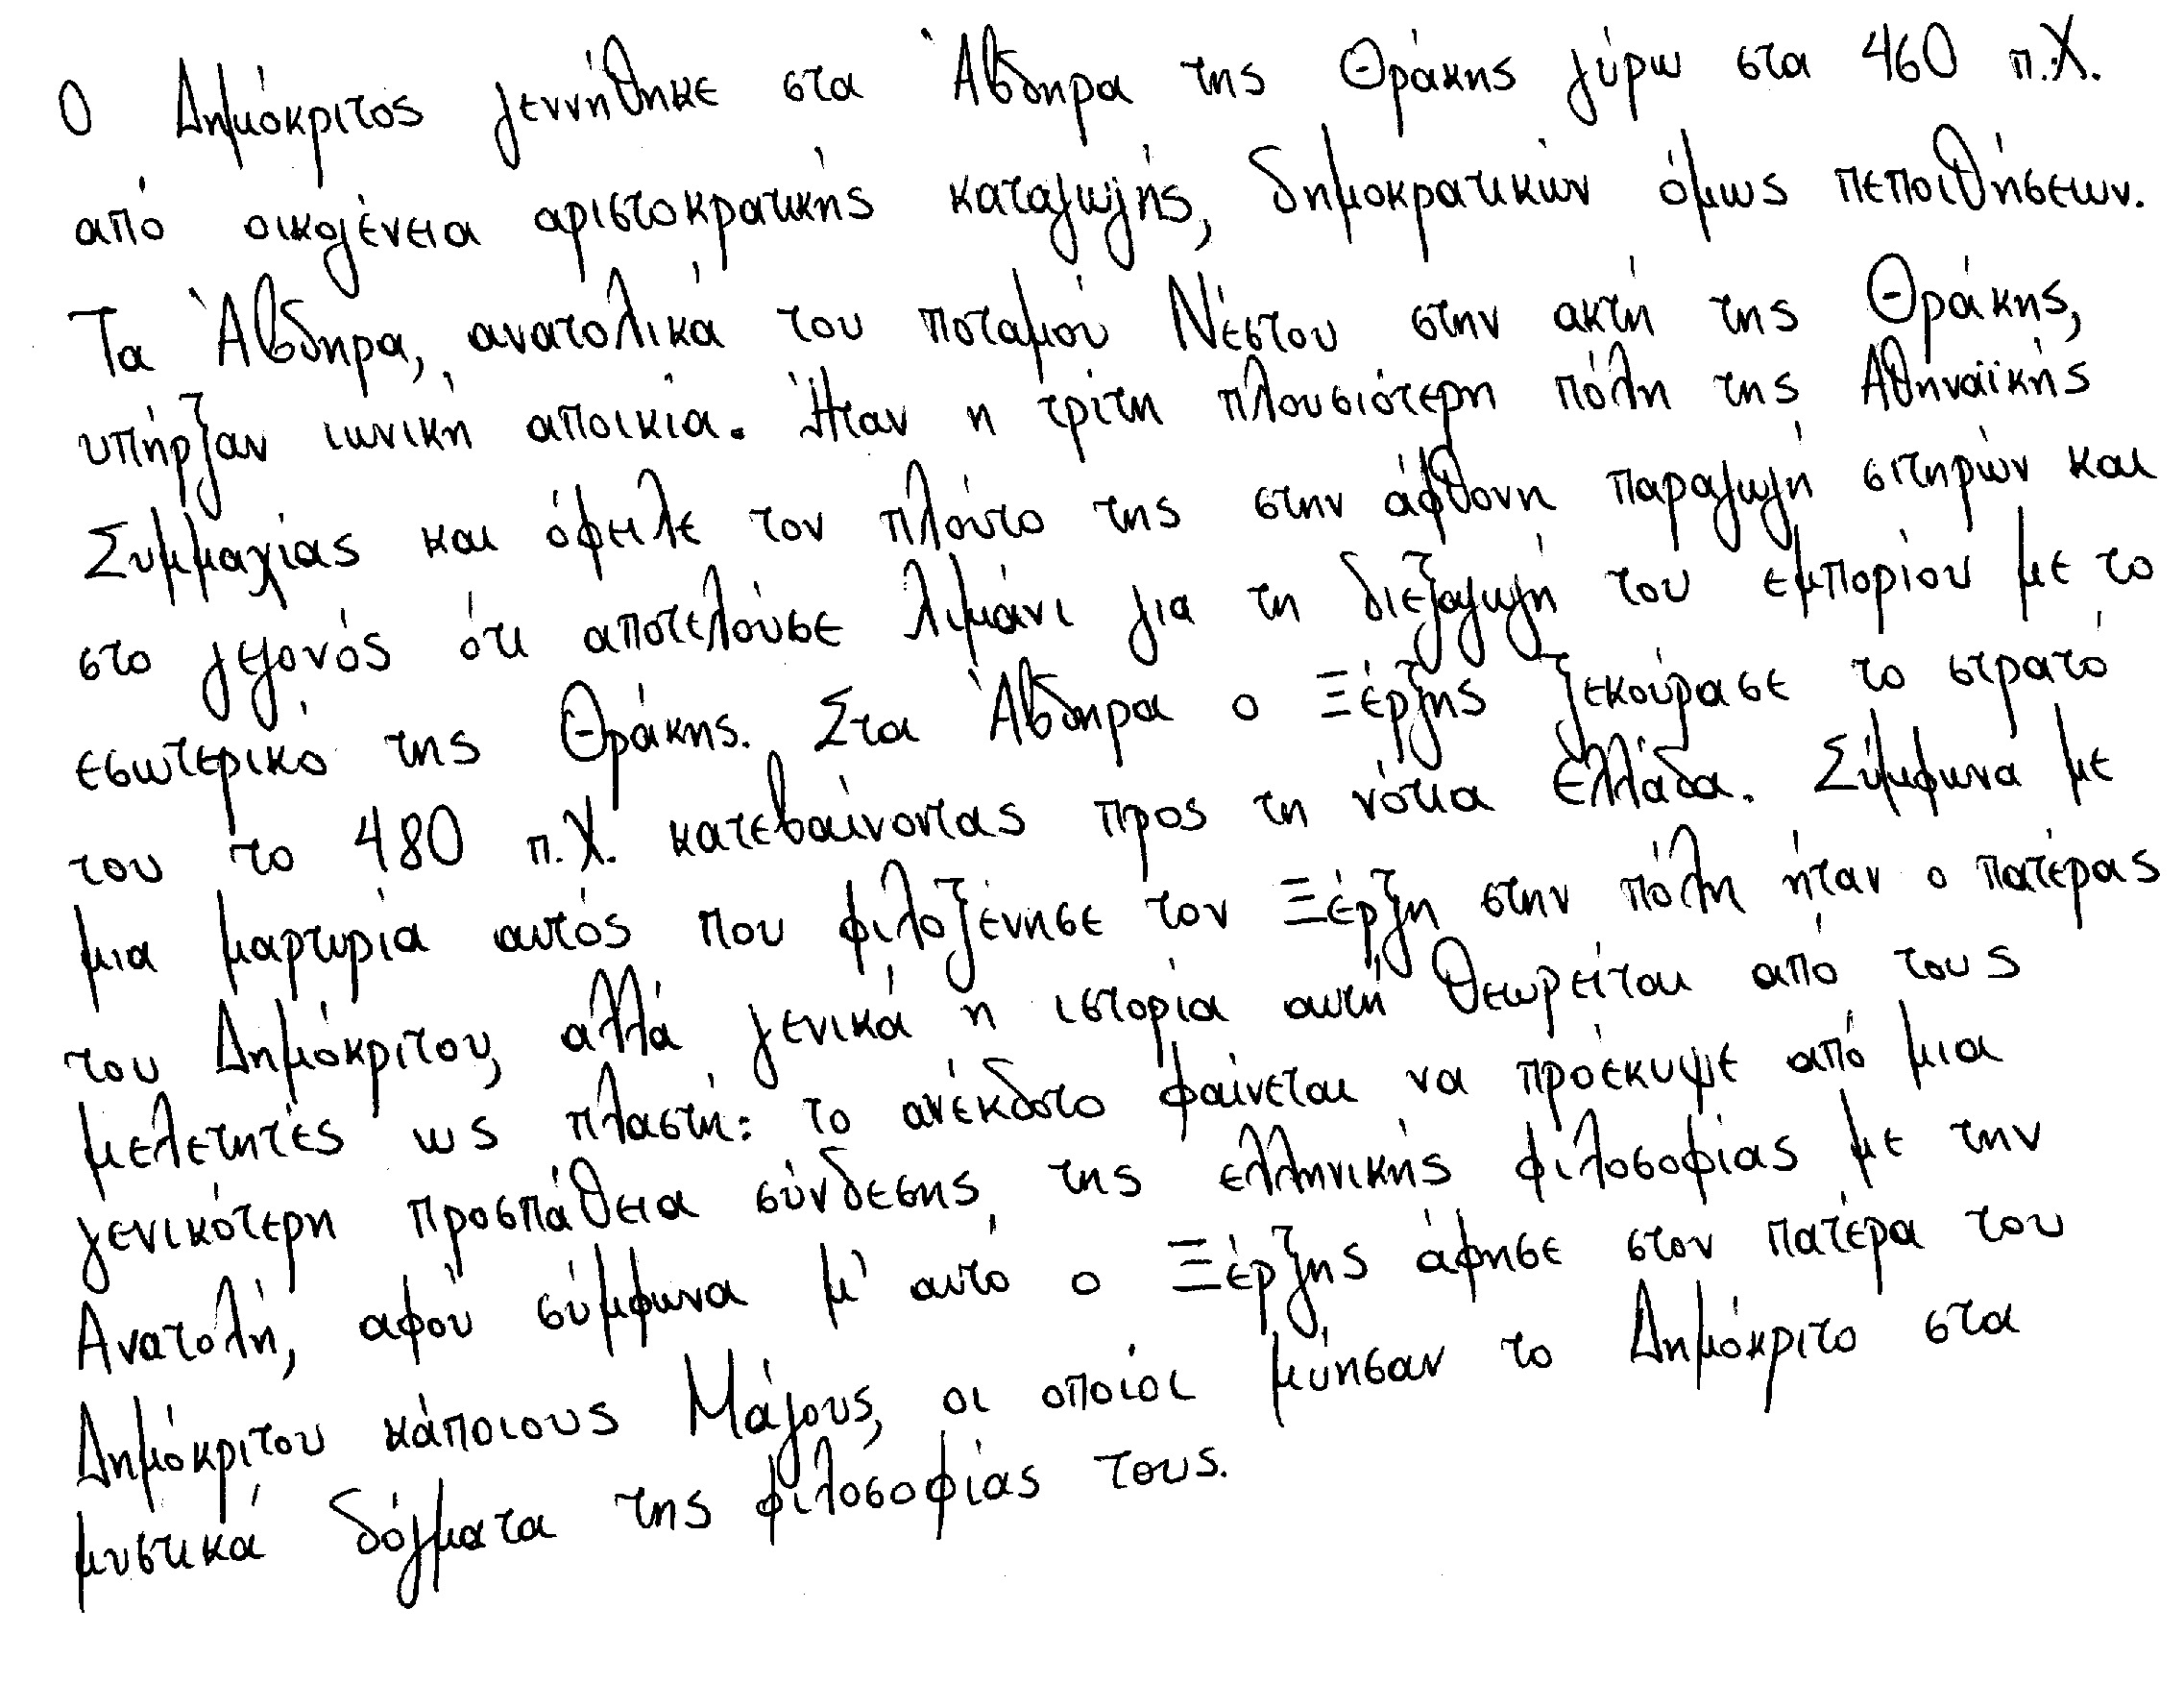 Ο Δημόκριτος γεννήθηκε στα Άβδηρα της Θράκης γύρω στα 460 π.Χ.
από οικογένεια αριστοκρατικής καταγωγής, δημοκρατικών όμως πεποιθήσεων.
Τα Άβδηρα, ανατολικά του ποταμού Νέστου στην ακτή της Θράκης,
υπήρξαν ιωνική αποικία. Ήταν η τρίτη πλουσιότερη πόλη της Αθηναϊκής
Συμμαχίας και όφειλε τον πλούτο της στην άφθονη παραγωγή σιτηρών και
στο γεγονός ότι αποτελούσε λιμάνι για τη διεξαγωγή του εμπορίου με το
εσωτερικό της Θράκης. Στα Άβδηρα ο Ξέρξης ξεκούρασε το στρατό
του το 480 π.Χ. κατεβαίνοντας προς τη νότια Ελλάδα. Σύμφωνα με
μια μαρτυρία αυτός που φιλοξένησε τον Ξέρξη στην πόλη ήταν ο πατέρας
του Δημόκριτου, αλλά γενικά η ιστορία αυτή θεωρείται από τους
μελετητές ως πλαστή: το ανέκδοτο φαίνεται να προέκυψε από μια
γενικότερη προσπάθεια σύνδεσης της ελληνικής φιλοσοφίας με την
Ανατολή, αφού σύμφωνα μ' αυτό ο Ξέρξης άφησε στον πατέρα του
Δημόκριτου κάποιους Μάγους, οι οποίοι μύησαν το Δημόκριτο στα
μυστικά δόγματα της φιλοσοφίας τους.